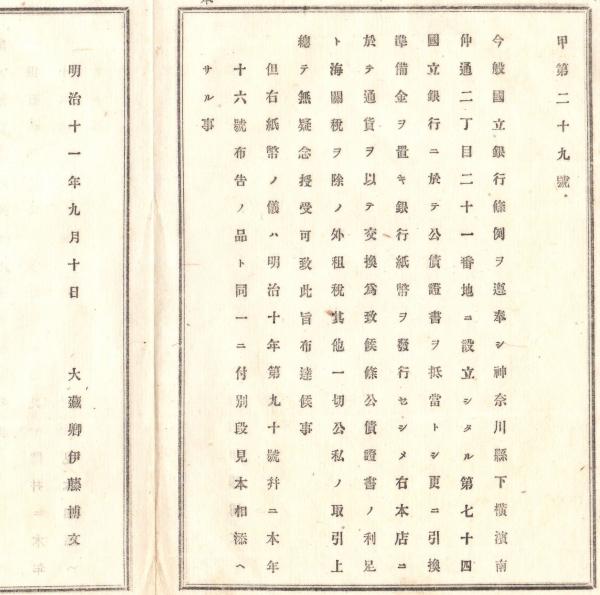 甲第二十九號
今般國立銀行條例ヲ遵奉シ神奈川縣下横濱南
仲通二丁目二十一番地ニ設立シタル第七十四
國立銀行ニ於テ公債證書ヲ抵當トシ更ニ引換
準備金ヲ置キ銀行紙幣ヲ發行セシメ右本店ニ
於テ通貨ヲ以テ交換爲致候條公債證書ノ利足
ト海關稅ヲ除ノ外租稅其他一切公私ノ取引上
總テ無疑念授受可致此旨布達候事
但右紙幣ノ儀ハ明治十年第九十號幷ニ本年
十六號布告ノ品ト同一ニ付別段見本相添ヘ
サル事
明治十一年九月十日 大藏卿伊藤博文